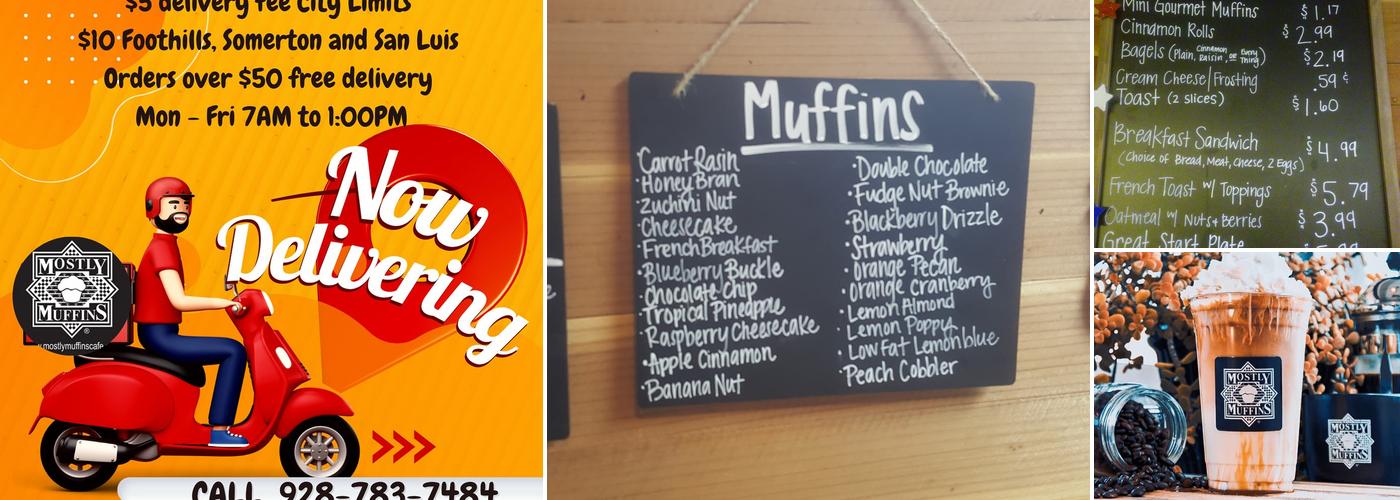 $5 delivery fee City Limits
$10 Foothills, Somerton and San Luis
Orders over $50 free delivery
Mon - Fri 7AM to 1:00PM
Now
Delivering
MOSTLY
MUFFINS
®
mostlymuffinscafe
CALL 928-783-7484
Muffins
·Carrot Rasin
·Honey Bran
·Zuchini Nut
·Cheesecake
·French Breakfast
·Blueberry Buckle
·Chocolate Chip
·Tropical Pineapple
·Raspberry Cheesecake
·Apple Cinnamon
·Banana Nut
·Double Chocolate
·Fudge Nut Brownie
·Blackberry Drizzle
·Strawberry
·Orange Pecan
·Orange Cranberry
·Lemon Almond
·Lemon Poppy
·Low Fat Lemonblue
·Peach Cobbler
Mini Gourmet Muffins $1.17
Cinnamon Rolls $2.99
Bagels (Plain, Cinnamon Raisin, or Every Thing) $2.19
Cream Cheese/Frosting .59¢
Toast (2 slices) $1.60
Breakfast Sandwich $4.99
(Choice of Bread, Meat, Cheese, 2 Eggs)
French Toast w/ Toppings $5.79
Oatmeal w/ Nuts + Berries $3.99
Great Start Plate
MOSTLY
MUFFINS
MOSTLY
MUFFINS